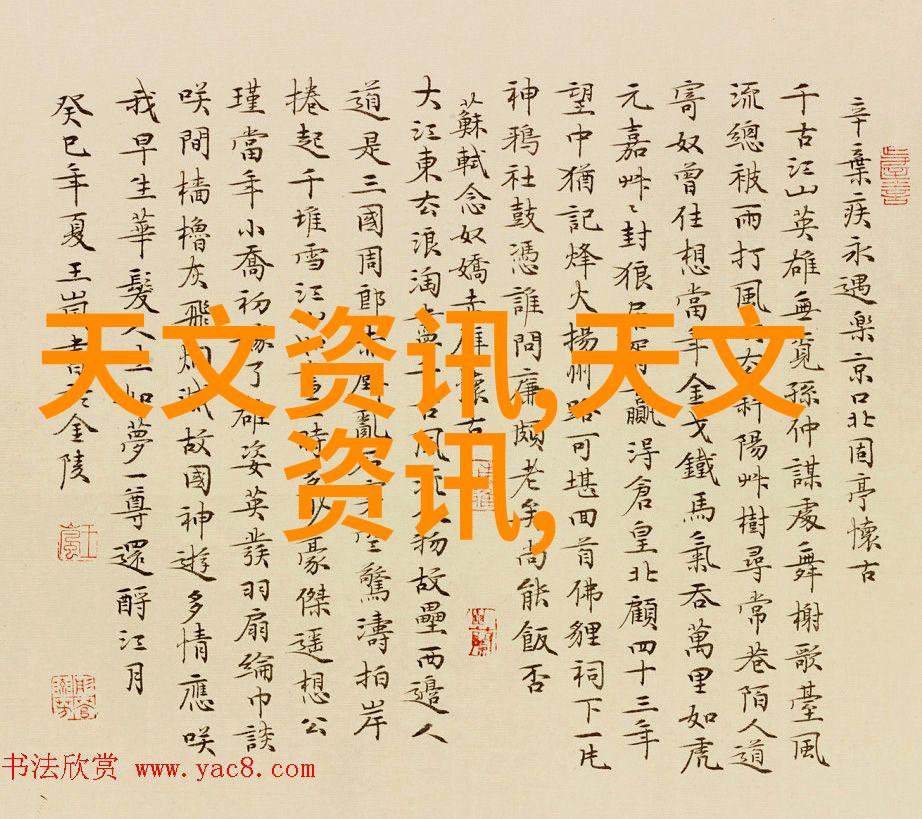 辛棄疾永遇樂京口北固亭懷古
千古江山英雄無覓孫仲謀處舞榭歌臺風
流總被雨打風 斜陽艸樹尋常巷陌人道
寄奴曾住想當年金戈鐵馬氣吞萬里如虎
元嘉艸艸封狼居 贏得倉皇北顧四十三年
望中猶記烽火揚州路可堪回首佛貍祠下一片
神鴉社鼓憑誰問廉頗老矣尚能飯否
蘇軾念奴嬌赤 懷古
大江東去浪淘 物故壘西邊人
道是三國周郎赤 亂 驚濤拍岸
捲起千堆雪江 時多 豪傑遥想公
瑾當年小喬初嫁了雄姿英發羽扇綸巾談
咲間檣櫓灰飛烟滅故國神遊多情應咲
我早生華髮人生如夢一尊還酹江月
癸巳年夏王 書 金陵
天文资讯,天文
资讯,
书法欣赏 www.yac8.com